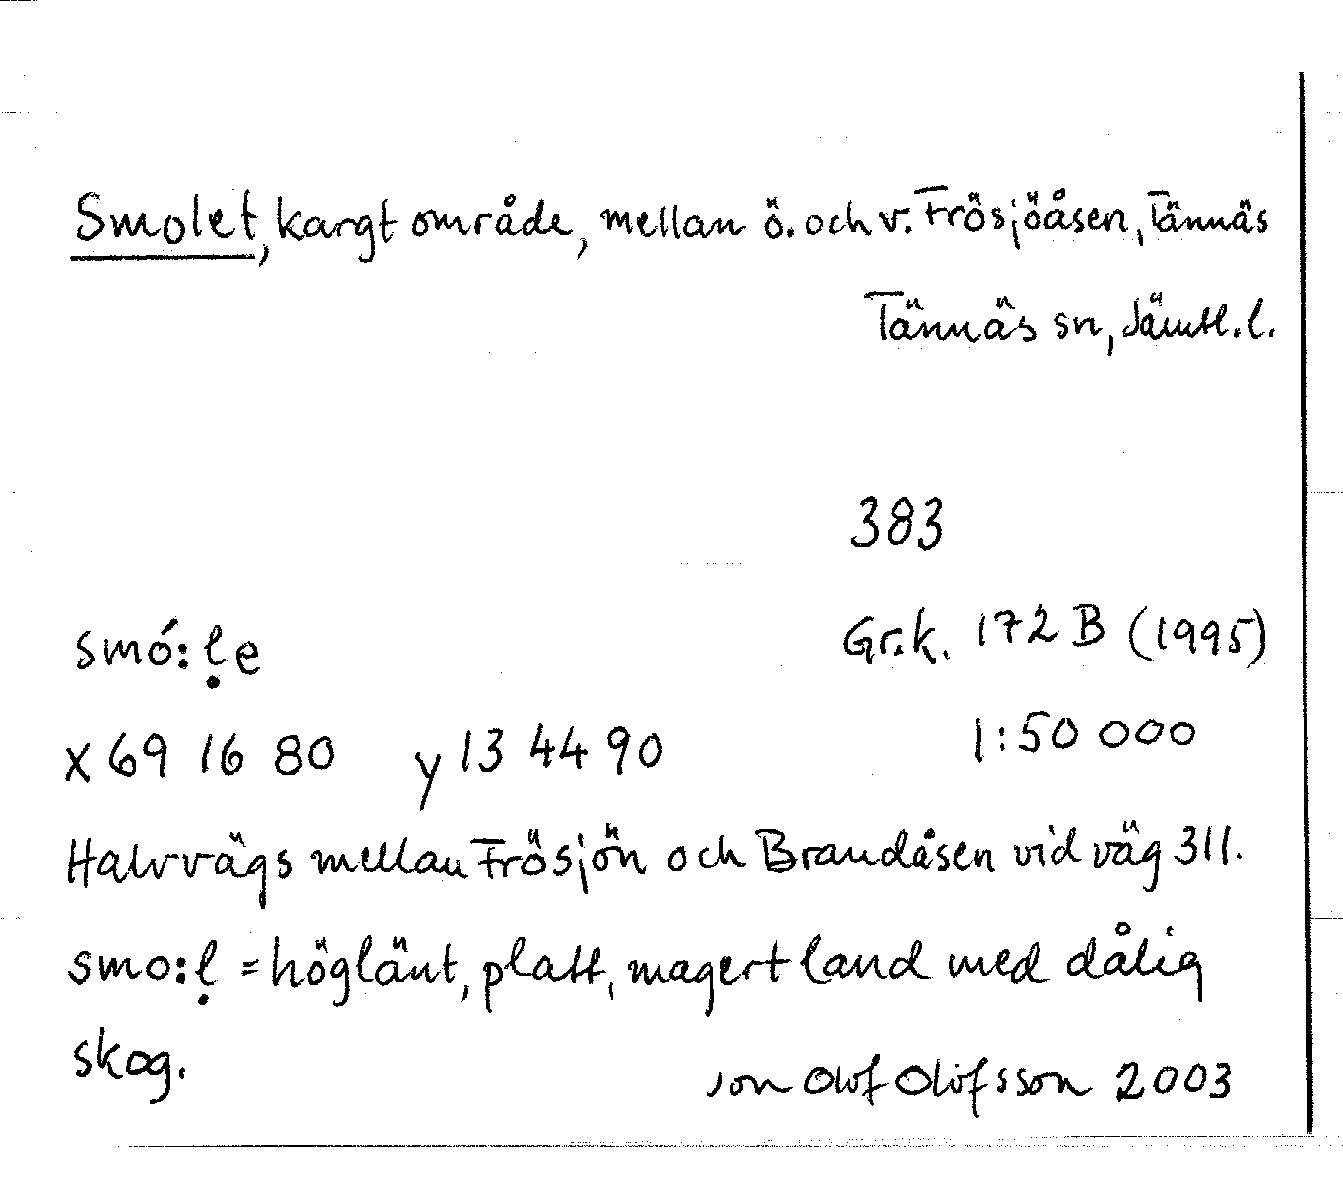 Smolet, kargt område, mellan ö. och v. Frösjöåsen, Tännäs
Tännäs sn, Jämtl. l.
383
smó:ḷe
Gr.k. 172 B (1995)
x 69 16 80 y 13 44 90
1:50 000
Halvvägs mellan Frösjön och Brandåsen vid väg 311.
smo:ḷ = höglänt, platt, magert land med dålig
skog.
Jon Olof Olofsson 2003